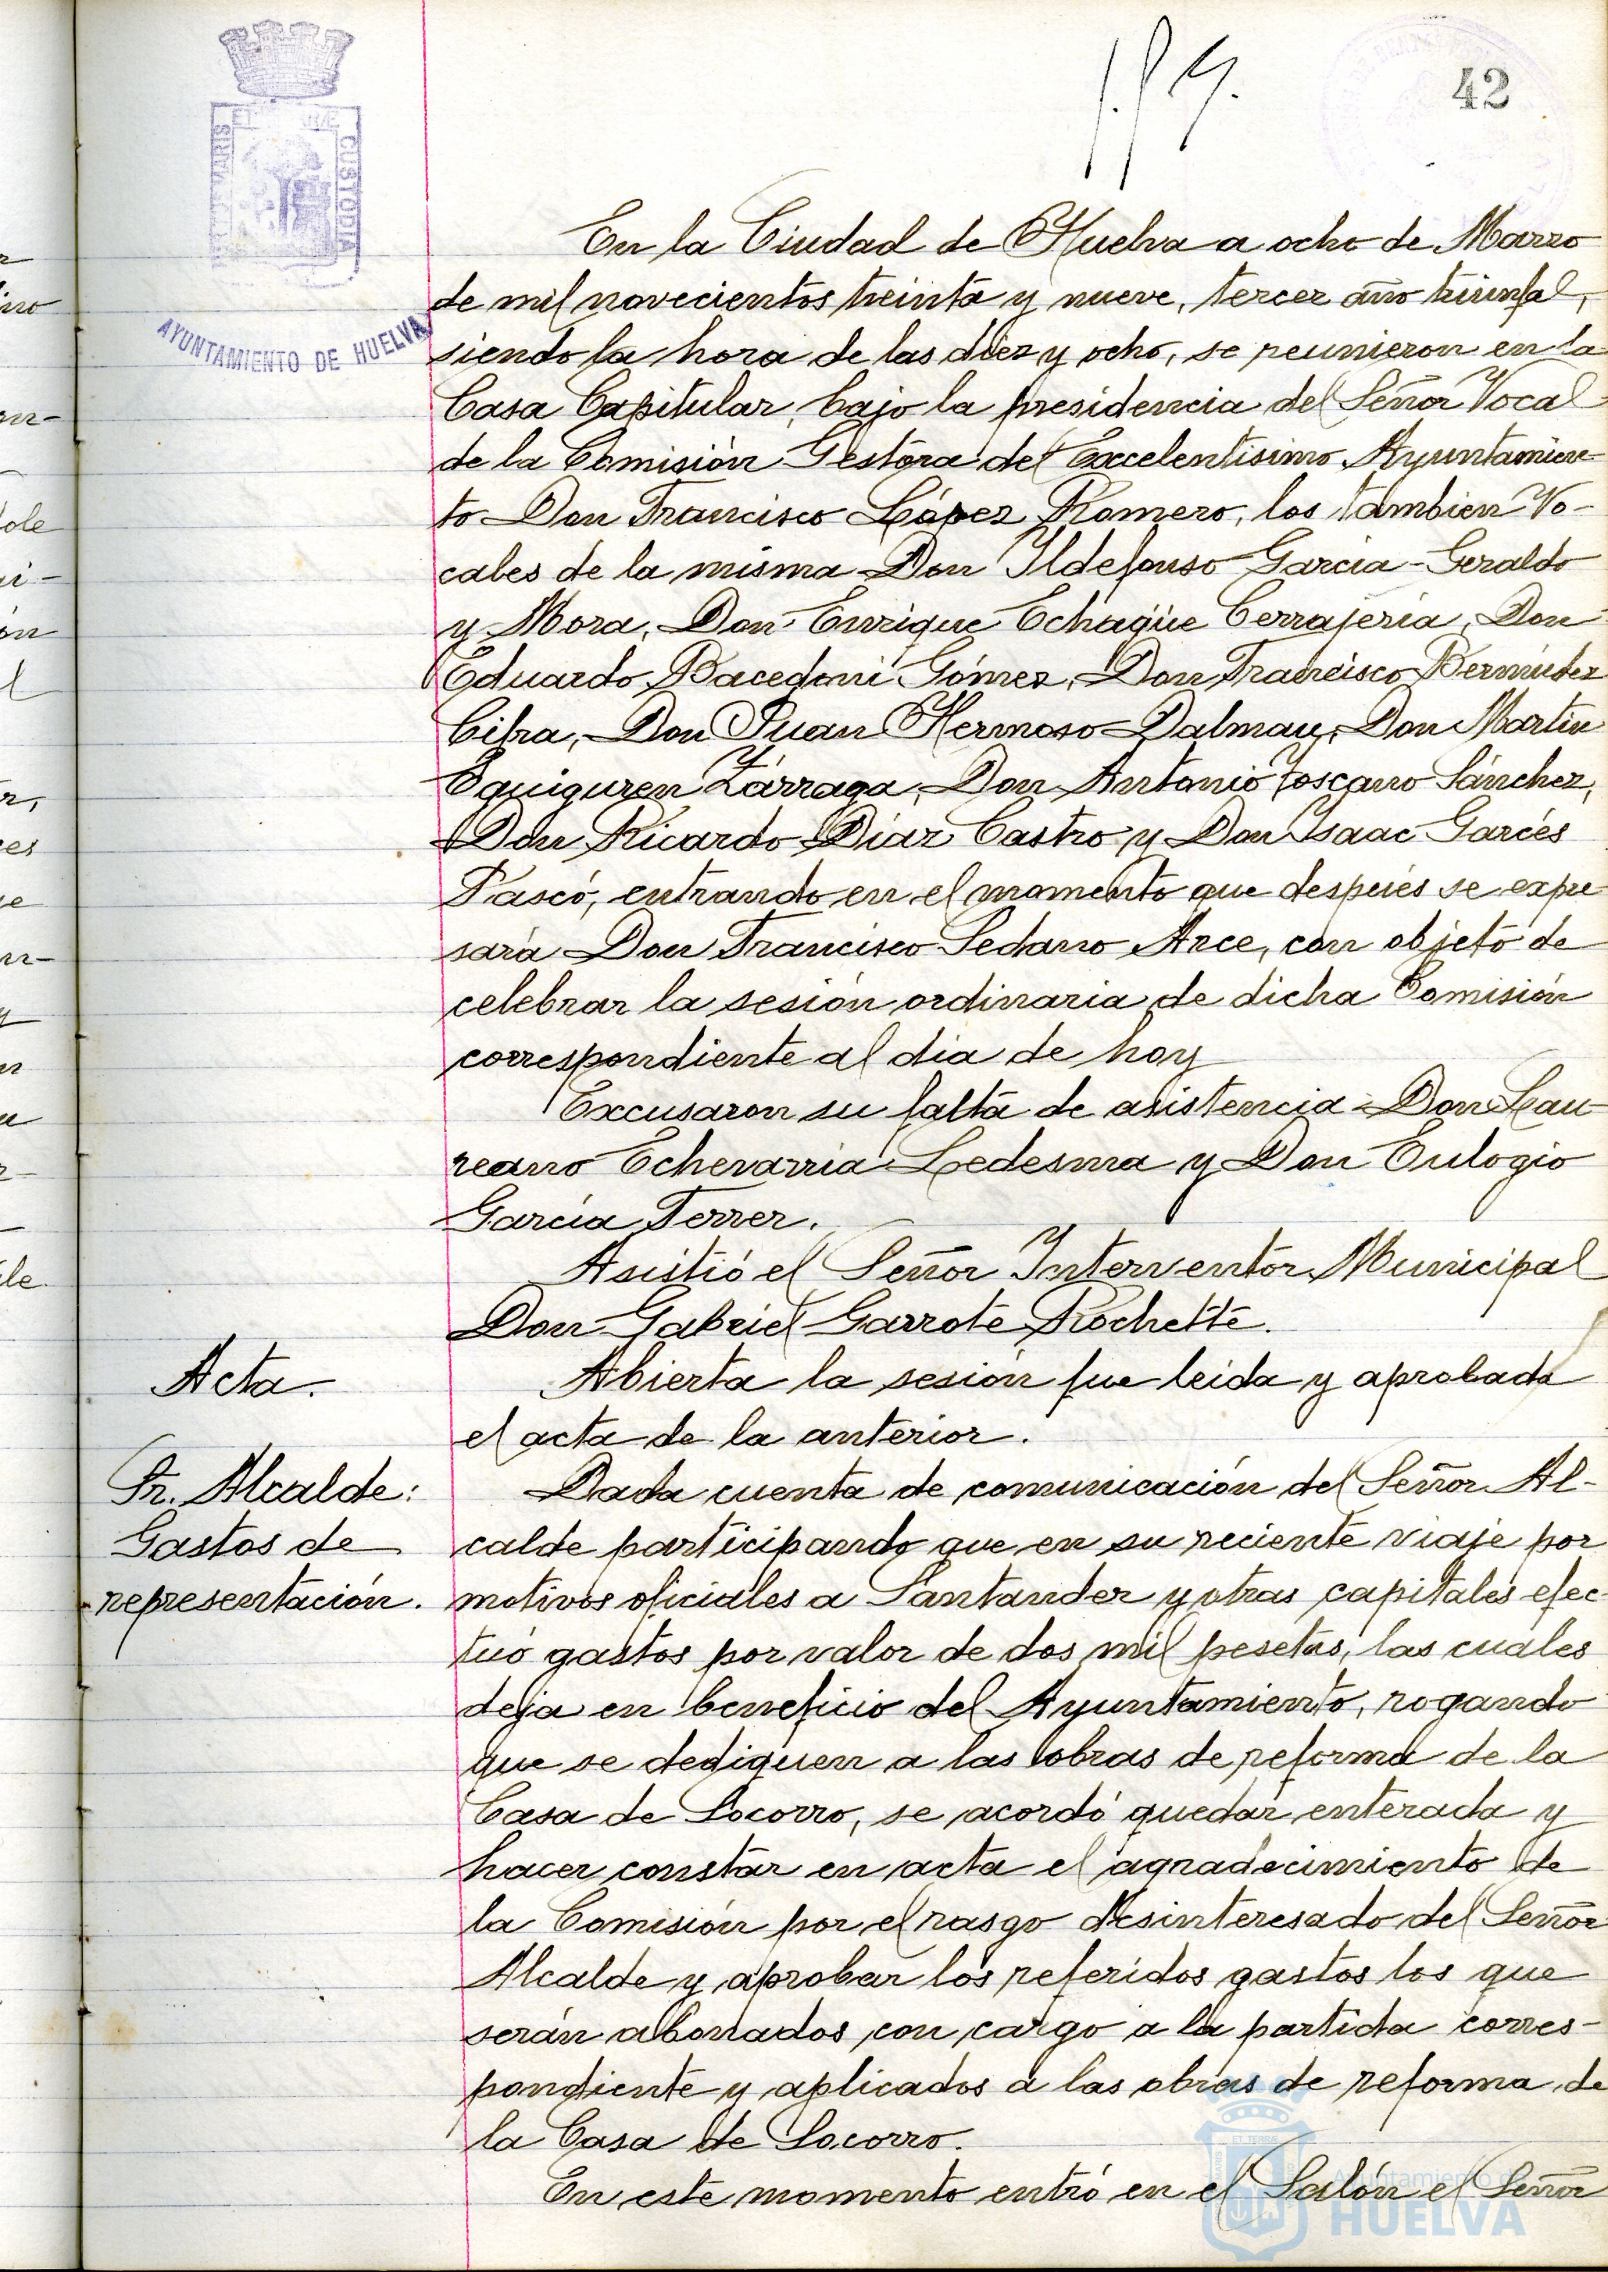 42
AYUNTAMIENTO DE HUELVA
CUSTODIA
En la Ciudad de Huelva a ocho de Marzo
de mil novecientos treinta y nueve, tercer año triunfal,
siendo la hora de las diez y ocho, se reunieron en la
Casa Capitular, bajo la presidencia del Señor Vocal
de la Comisión Gestora del Excelentisimo Ayuntamien-
to Don Francisco López Romero, los tambien Vo-
cales de la misma Don Ildefonso Garcia-Geraldo
y Mora, Don Enrique Echagüe Cerrajeria, Don
Eduardo Bacedoni Gómez, Don Francisco Bermúdez
Cibra, Don Juan Hermoso Dalmau, Don Martin
Eguiguren Zárraga, Don Antonio Toscano Sánchez,
Don Ricardo Diaz Castro y Don Isaac Garcés
Pascó, entrando en el momento que después se expre
sará Don Francisco Sedano Arce, con objeto de
celebrar la sesión ordinaria de dicha Comisión
correspondiente al dia de hoy
Excusaron su falta de asistencia Don Lau-
reano Echevarria Ledesma y Don Eulogio
García Ferrer.
Asistió el Señor Interventor Municipal
Don Gabriel Garrote Rochette.
Acta.
Abierta la sesión fue leida y aprobada
el acta de la anterior.
Sr. Alcalde:
Gastos de
representación.
Dada cuenta de comunicación del Señor Al-
calde participando que en su reciente viaje por
motivos oficiales a Santander y otras capitales efec-
tuó gastos por valor de dos mil pesetas, las cuales
deja en beneficio del Ayuntamiento, rogando
que se dediquen a las obras de reforma de la
Casa de Socorro, se acordó quedar enterada y
hacer constar en acta el agradecimiento de
la Comisión por el rasgo desinteresado del Señor
Alcalde y aprobar los referidos gastos los que
serán abonados con cargo a la partida corres-
pondiente y aplicados a las obras de reforma de
la Casa de Socorro.
En este momento entró en el Salón el Señor
Ayuntamiento de
HUELVA